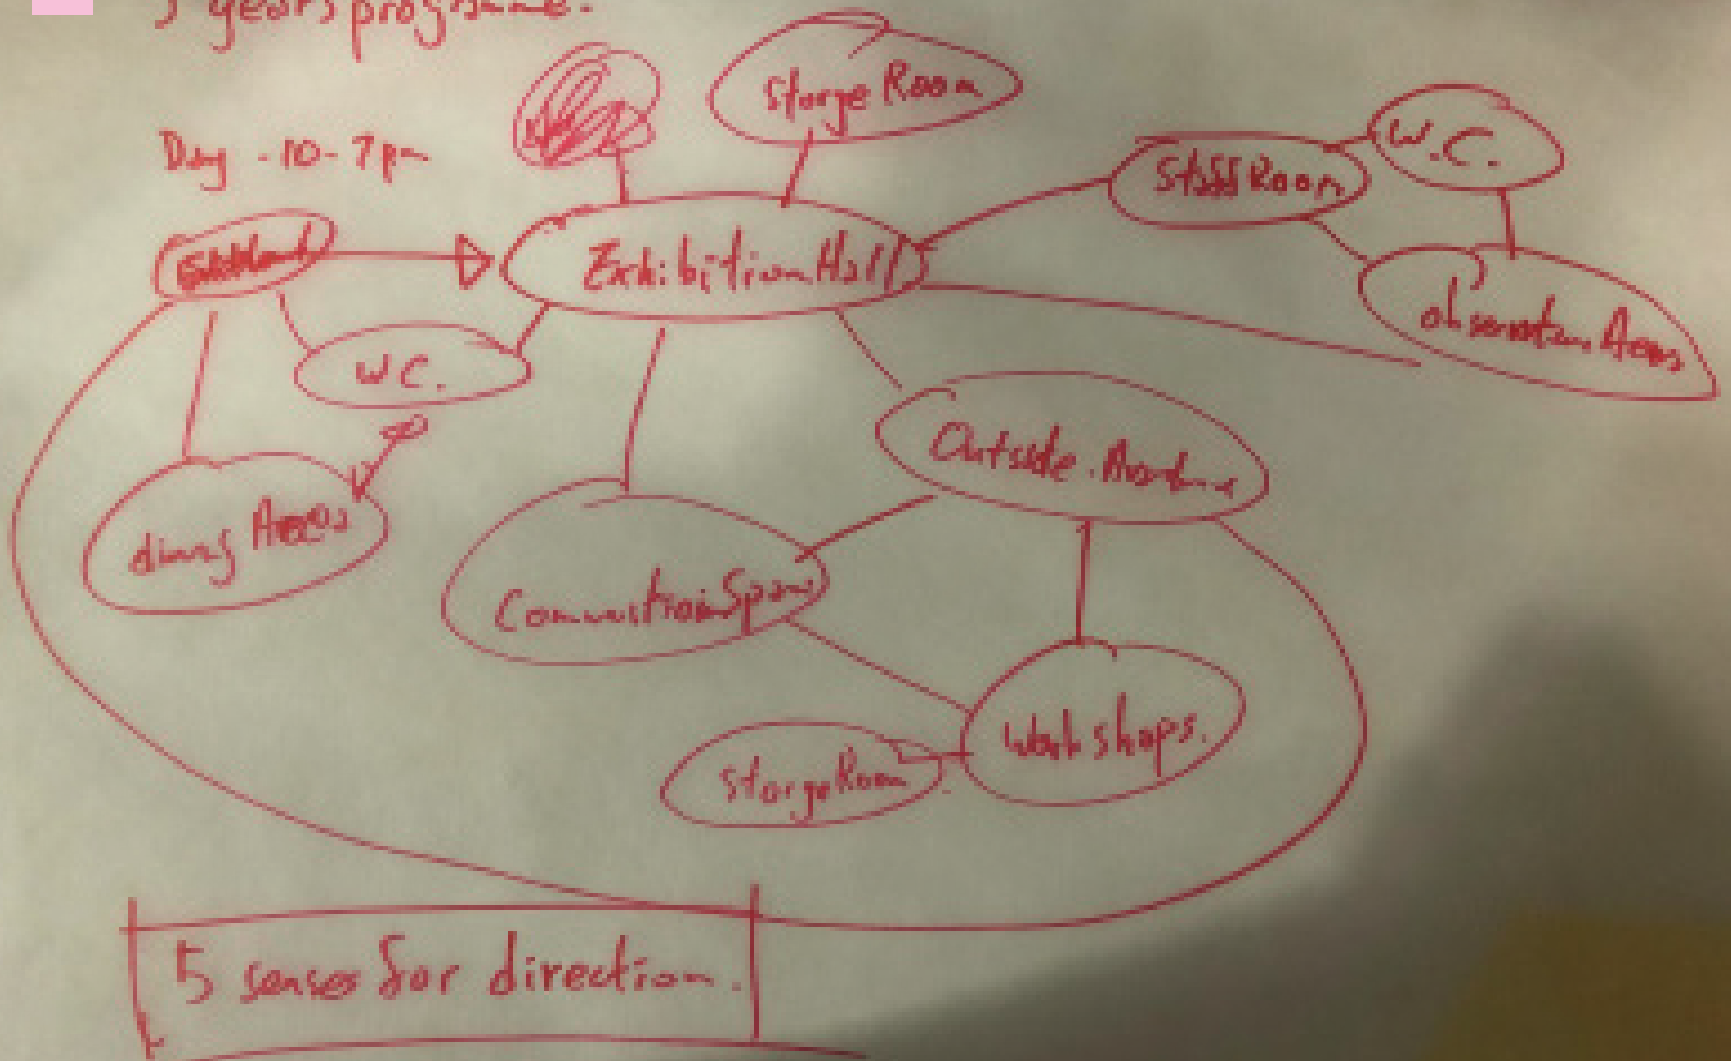 years programme.
Day - 10 - 7pm
Storge Room
W.C.
Staff Room
Exhibition Hall
observation Areas
W C.
Outside
dining Areas
Space
Workshops.
Storge Room
5 senses for direction.